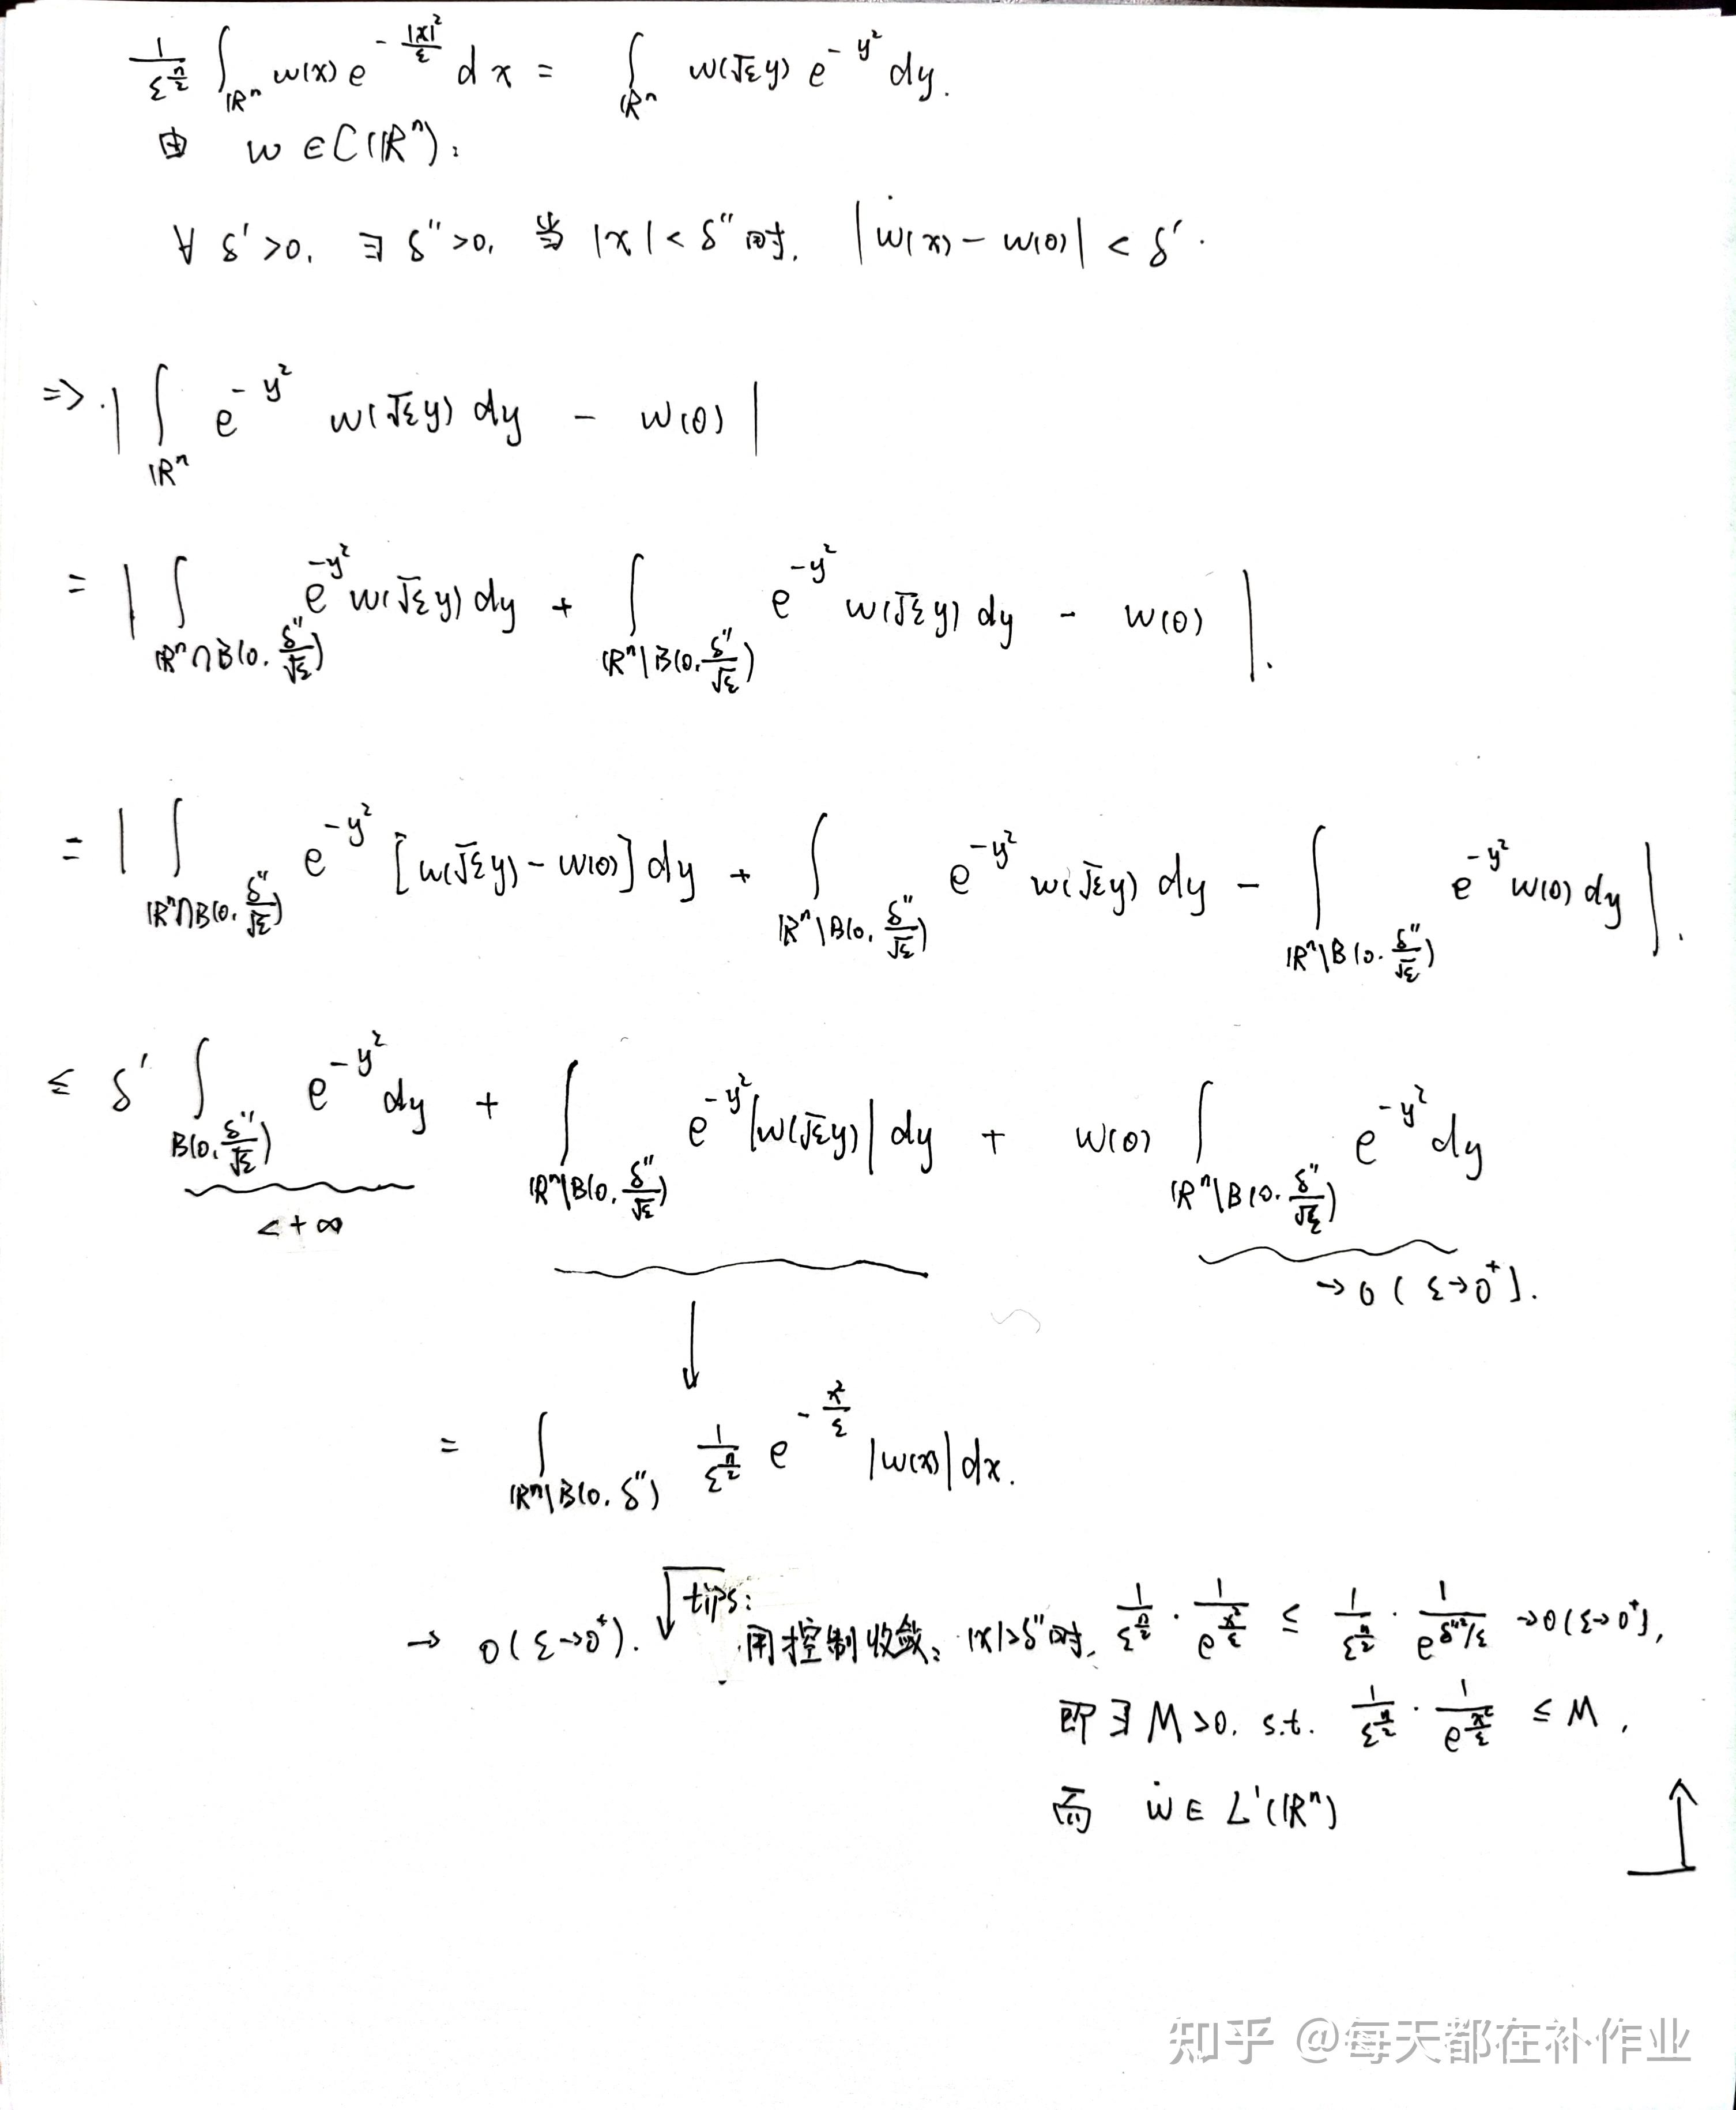 $\frac{1}{\varepsilon^{\frac{n}{2}}} \int_{\mathbb{R}^n} w(x) e^{-\frac{|x|^2}{\varepsilon}} dx = \int_{\mathbb{R}^n} w(\sqrt{\varepsilon} y) e^{-y^2} dy.$
由 $w \in C(\mathbb{R}^n)$:
$\forall \delta' > 0, \exists \delta'' > 0,$ 当 $|x| < \delta''$ 时, $|w(x) - w(0)| < \delta'.$
$\Rightarrow \left| \int_{\mathbb{R}^n} e^{-y^2} w(\sqrt{\varepsilon} y) dy - w(0) \right|$
$= \left| \int_{\mathbb{R}^n \cap B(0, \frac{\delta''}{\sqrt{\varepsilon}})} e^{-y^2} w(\sqrt{\varepsilon} y) dy + \int_{\mathbb{R}^n \setminus B(0, \frac{\delta''}{\sqrt{\varepsilon}})} e^{-y^2} w(\sqrt{\varepsilon} y) dy - w(0) \right|.$
$= \left| \int_{\mathbb{R}^n \cap B(0, \frac{\delta''}{\sqrt{\varepsilon}})} e^{-y^2} [w(\sqrt{\varepsilon} y) - w(0)] dy + \int_{\mathbb{R}^n \setminus B(0, \frac{\delta''}{\sqrt{\varepsilon}})} e^{-y^2} w(\sqrt{\varepsilon} y) dy - \int_{\mathbb{R}^n \setminus B(0, \frac{\delta''}{\sqrt{\varepsilon}})} e^{-y^2} w(0) dy \right|.$
$\leq \delta' \int_{B(0, \frac{\delta''}{\sqrt{\varepsilon}})} e^{-y^2} dy + \int_{\mathbb{R}^n \setminus B(0, \frac{\delta''}{\sqrt{\varepsilon}})} e^{-y^2} |w(\sqrt{\varepsilon} y)| dy + w(0) \int_{\mathbb{R}^n \setminus B(0, \frac{\delta''}{\sqrt{\varepsilon}})} e^{-y^2} dy$
$< +\infty$
$\to 0 (\varepsilon \to 0^+).$
$= \int_{\mathbb{R}^n \setminus B(0, \delta'')} \frac{1}{\varepsilon^{\frac{n}{2}}} e^{-\frac{x^2}{\varepsilon}} |w(x)| dx.$
$\to 0 (\varepsilon \to 0^+).$ tips:
用控制收敛: $|x| > \delta''$ 时, $\frac{1}{\varepsilon^{\frac{n}{2}}} \cdot \frac{1}{e^{\frac{x^2}{\varepsilon}}} \leq \frac{1}{\varepsilon^{\frac{n}{2}}} \cdot \frac{1}{e^{\delta''^2/\varepsilon}} \to 0 (\varepsilon \to 0^+),$
即 $\exists M > 0,$ s.t. $\frac{1}{\varepsilon^{\frac{n}{2}}} \cdot \frac{1}{e^{\frac{x^2}{\varepsilon}}} \leq M,$
而 $w \in L^1(\mathbb{R}^n)$
知乎 @每天都在补作业